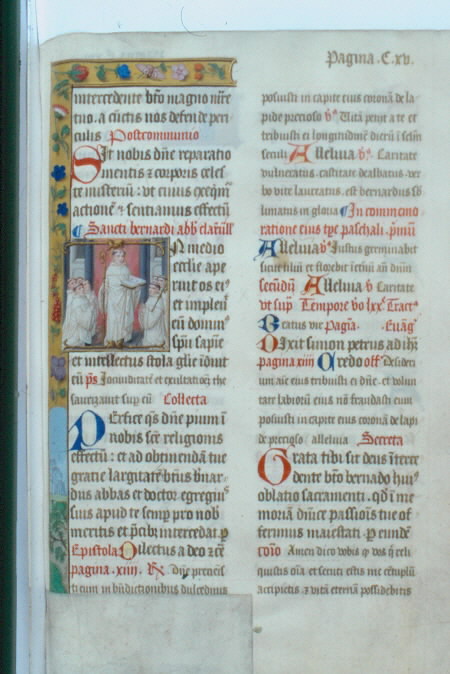 Pagina . C . xv .
intercedente bt̄o magno m̄re
tuo . a cūctis nos defende peri
culis Postcommunio
Sit nobis dn̄e reparatio
mentis ⁊ corporis celes
te misteriū : vt cuius exeqm̄
actionē ⁊ sentiamus effectū
Sancti bernardi abb̄
IN medio
ecclie ape
ruit os ei⁹
et impleū
eū domin⁹
spū sapiē
et intellectus stola glie iduit
eū p̄s Iocunditatē et exultationē the
saurizauit sup eū Collecta
Perfice qs̄ dn̄e pium ī
nobis scē religionis
effectū : et ad obtinendā tue
gratie largitatē bt̄us b̄nar
dus abbas et doctor egregiu⁹
suus apud te semp̄ pro nob̄
meritis et p̄cib⁹ intercedat . p
Epistola Dilectus a deo
pagina . xiiii . Rx Dn̄e preuēis
ti eum in bn̄dictionibus dulcedinis
posuisti in capite eius coronā de la
pide precioso v̄s . Vitā petiit a te et
tribuisti ei longitudinē dierū ī selm̄
seculi Alleluia v̄s . Caritate
vulneratus . castitate dealbatus . ver
bo vite laureatus . est bernardus sb̄
limatus in gloria In commemo
ratione eius tpe paschali . p̄mū
Alleluia v̄s Iustus germinabit
sicut liliū et florebit ī eternū an̄ dn̄m
secūdū Alleluia v̄ Caritate
vt sup̄ Tempore v̄o lxx̄ Tract⁹
Beatus vir Pagīa . Euāg̅
Dixit simon petrus ad ih̄
pagina xiiii Credo off̄ Desideri
um aīe eius tribuisti ei dn̄e . et volun
tate labiorū eius nō fraudasti eum
posuisti in capite eius coronā de lapi
de precioso . alleluia Secreta
Grata tibi sit deus īterce
dente bt̄o bernardo hui⁹
oblatio sacramenti . qd̄ ī me
moriā dn̄ice passiōis tue of
ferimus maiestati . p eundē
cōio Amen dico vobis q̄ vos q̄ reli
quistis oīa et secuti estis me cētuplū
accipietis ⁊ vitā eternā possidebitis